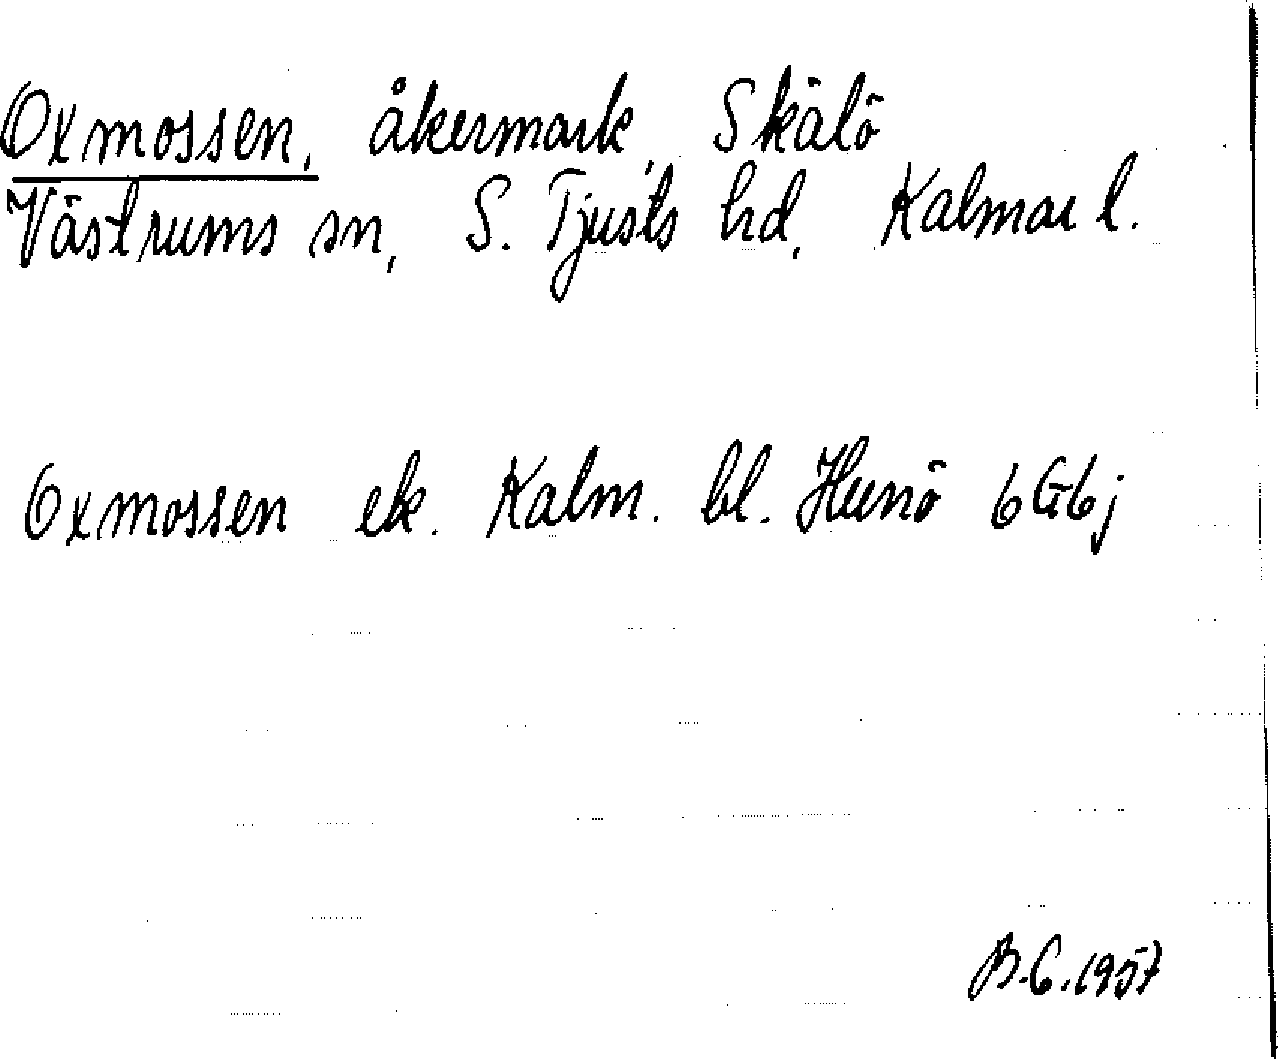 Oxmossen, åkermark, Skälö
Västrums sn, S. Tjusts hd, Kalmar l.
Oxmossen ek. Kalm. bl. Hunö 6G6j
B.G. 1957